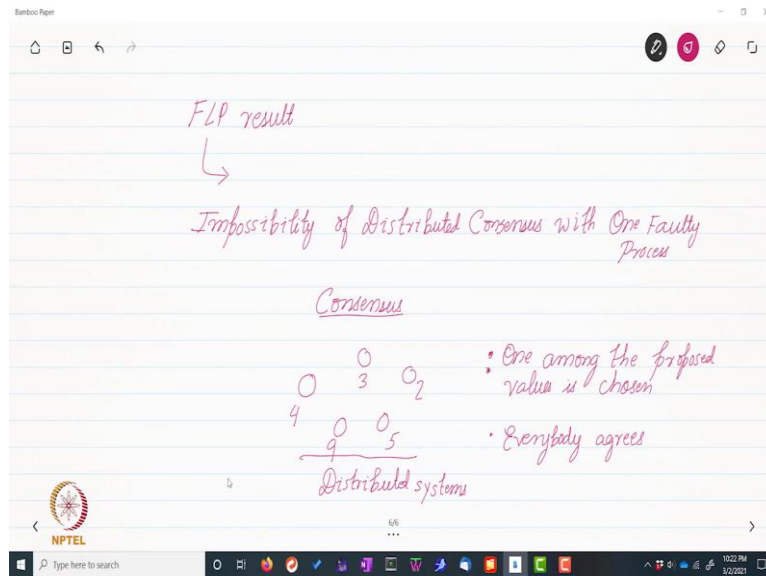 Bamboo Paper
FLP result
Impossibility of Distributed Consensus with One Faulty
Process
Consensus
3
2
4
9
5
: One among the proposed
values is chosen
· Everybody agrees
Distributed systems
NPTEL
6/6
Type here to search
10:22 PM
3/2/2021